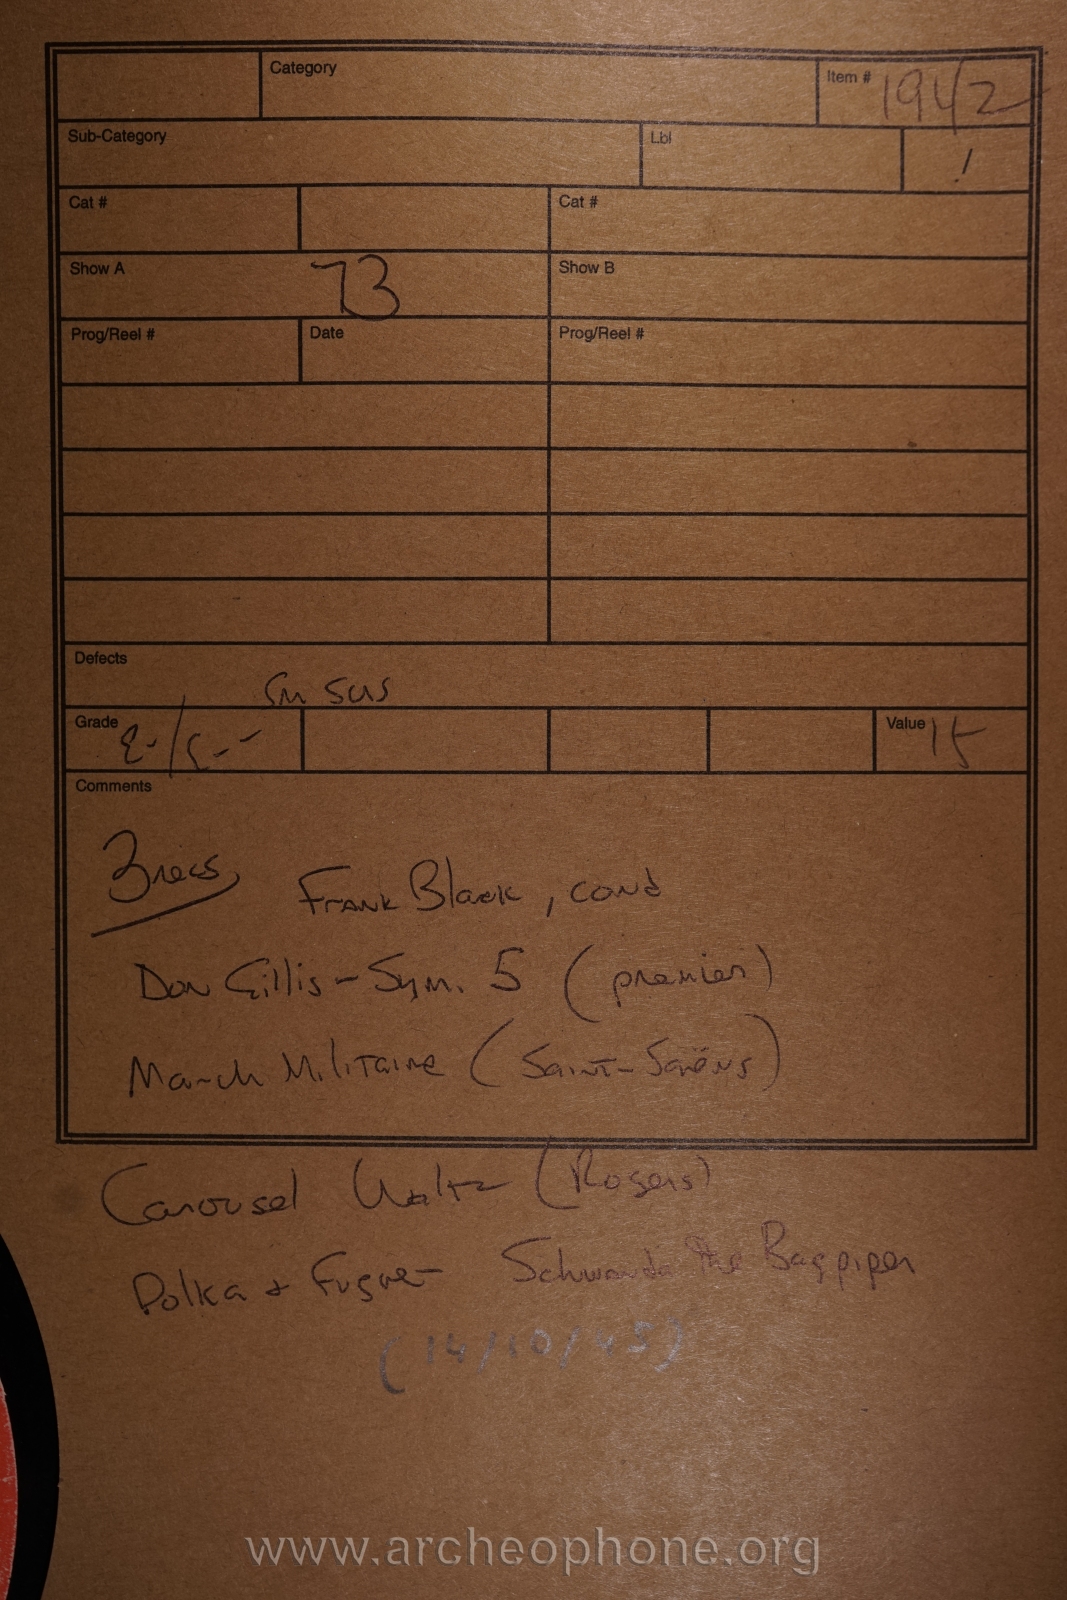 Category
Item # 1942
Sub-Category
Lbl
Cat #
Cat #
Show A 73
Show B
Prog/Reel #
Date
Prog/Reel #
Defects
Sm scrs
Grade E-/E--
Value 15
Comments
3 recs
Frank Black, cond
Don Gillis - Sym. 5 (premier)
March Militaire (Saint-Saëns)
Carousel Waltz (Rogers)
Polka + Fugue - Schwanda the Bagpiper
(14/10/45)
www.archeophone.org